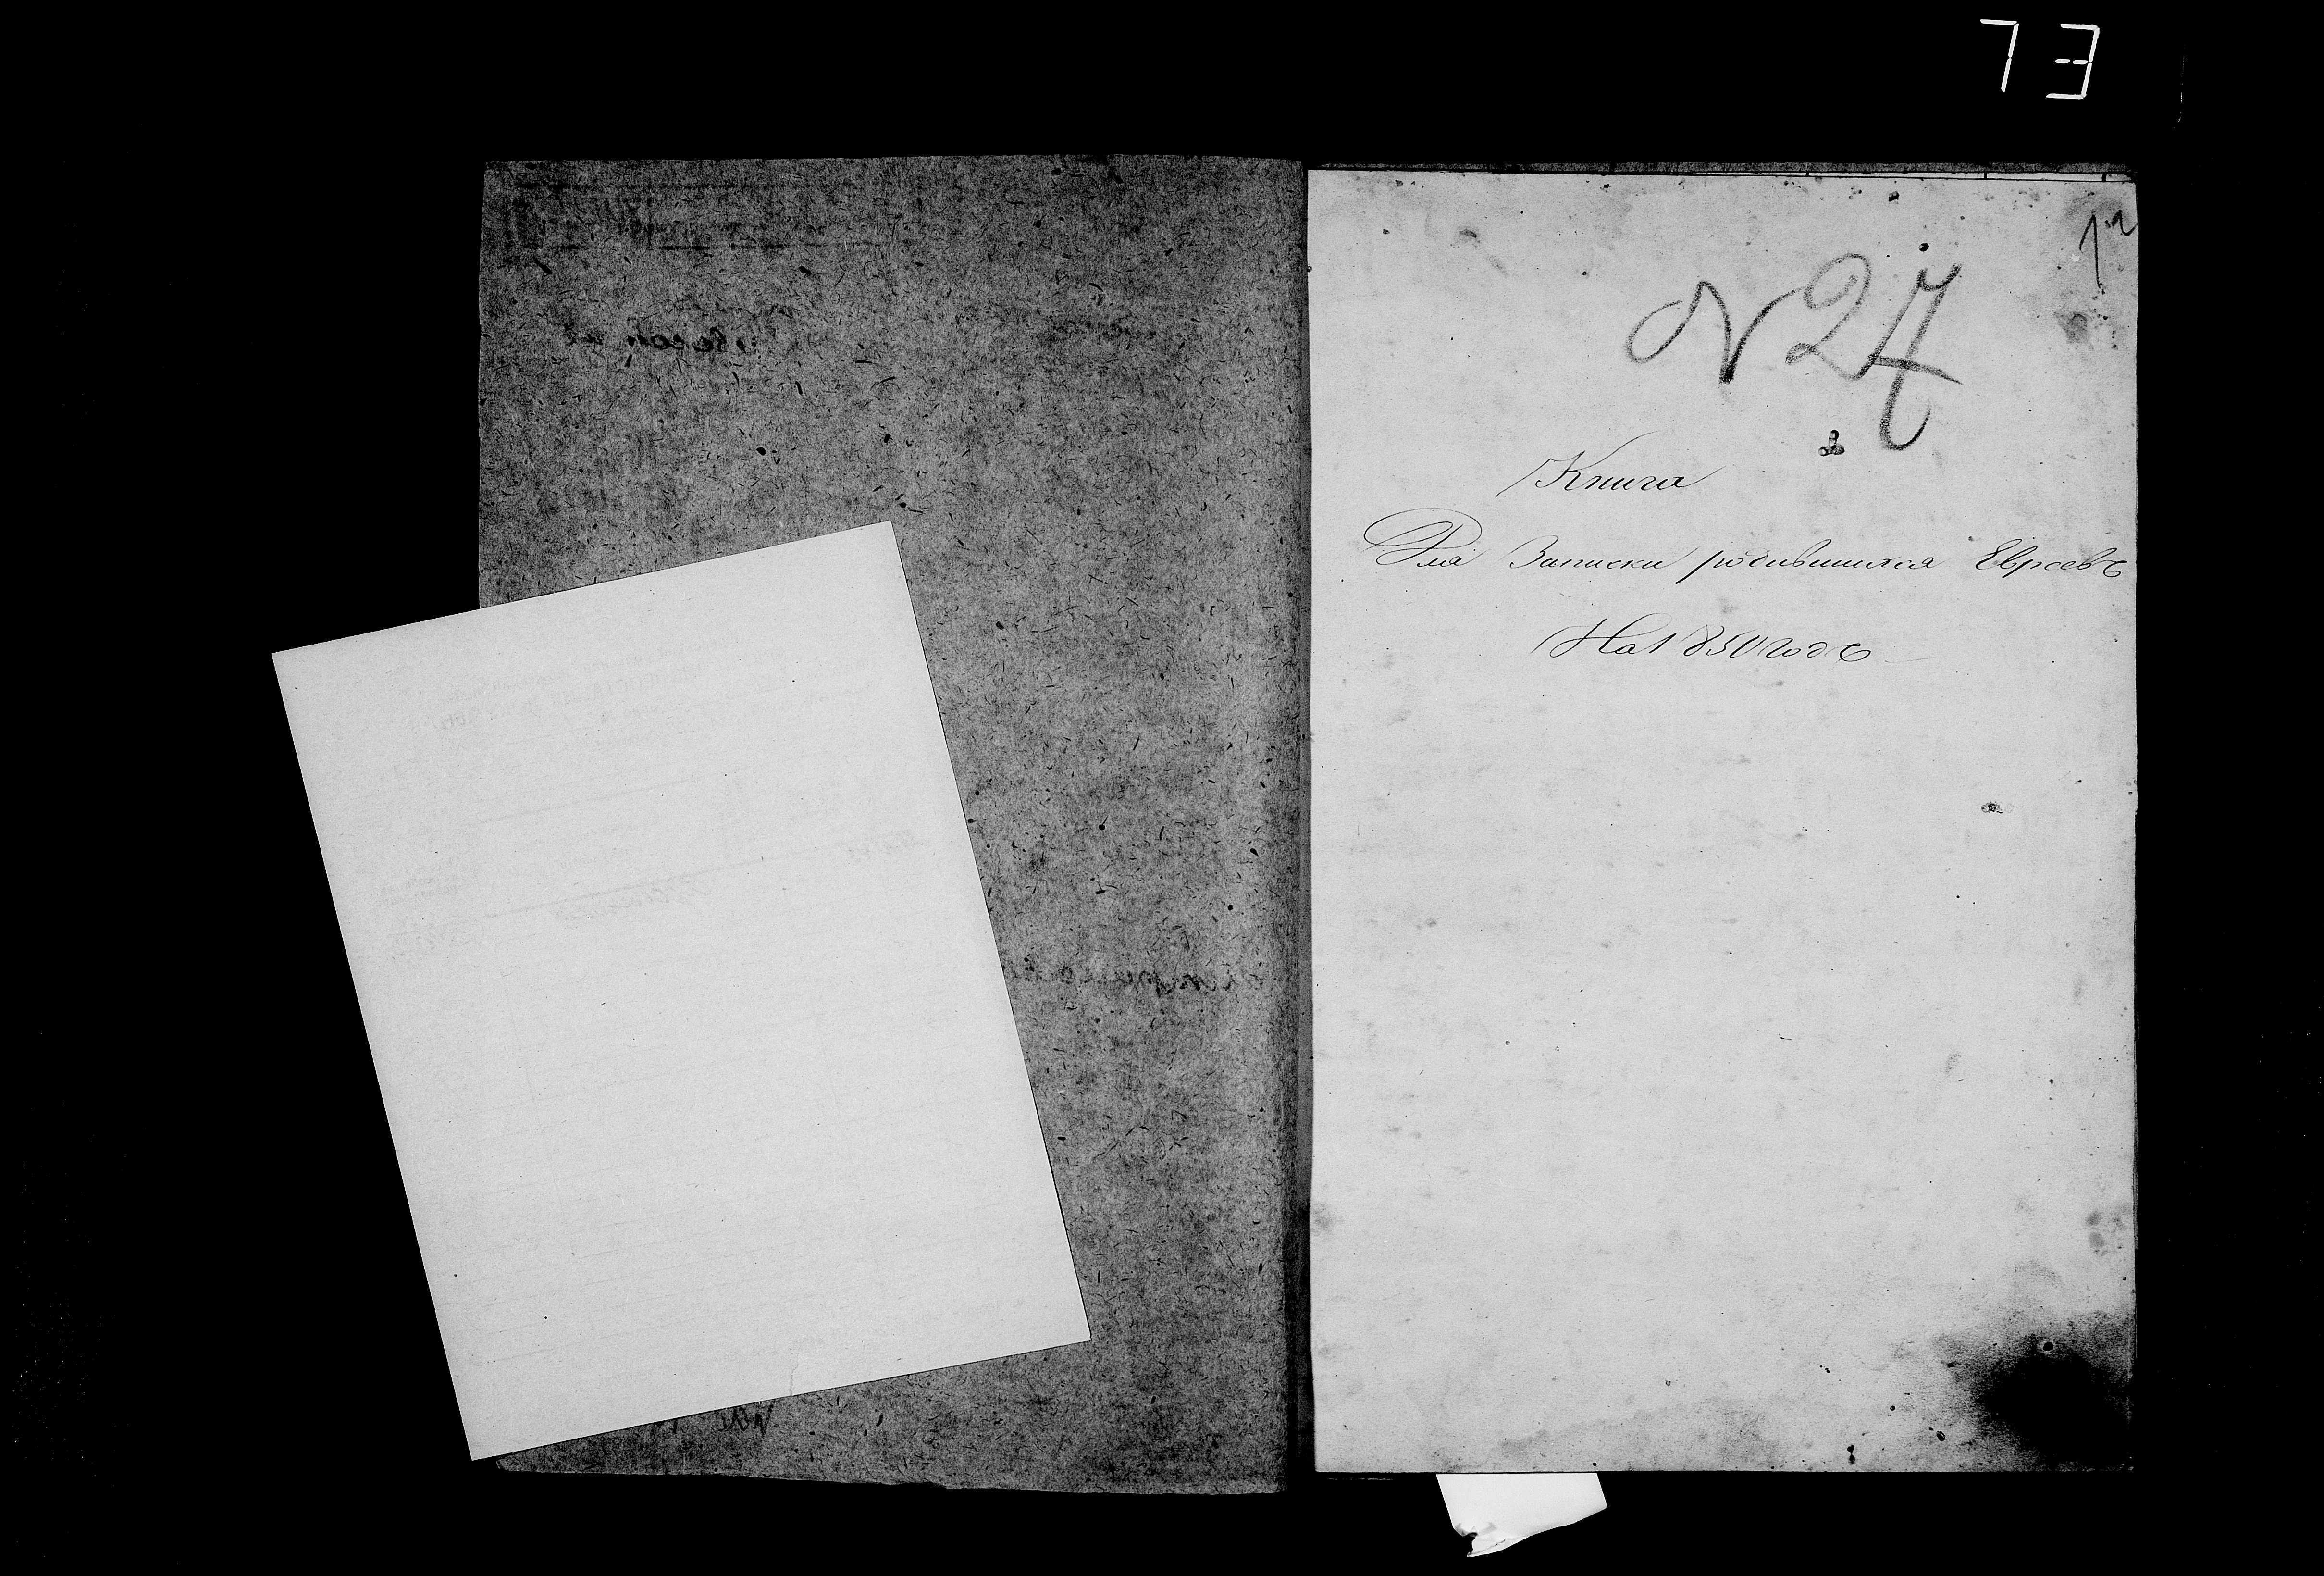 73
N 27
Книга
Для Записки родившихся Евреевъ
На 1850 годъ